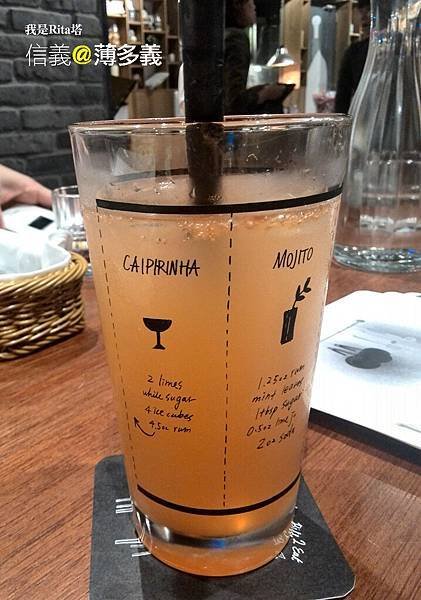 我是Rita塔
信義@薄多義
CAIPIRINHA
2 limes
white sugar
4 ice cubes
4.5oz rum
MOJITO
1.25oz rum
mint leaves
1 tbsp sugar
0.5oz lime
2oz soda
2 Eat